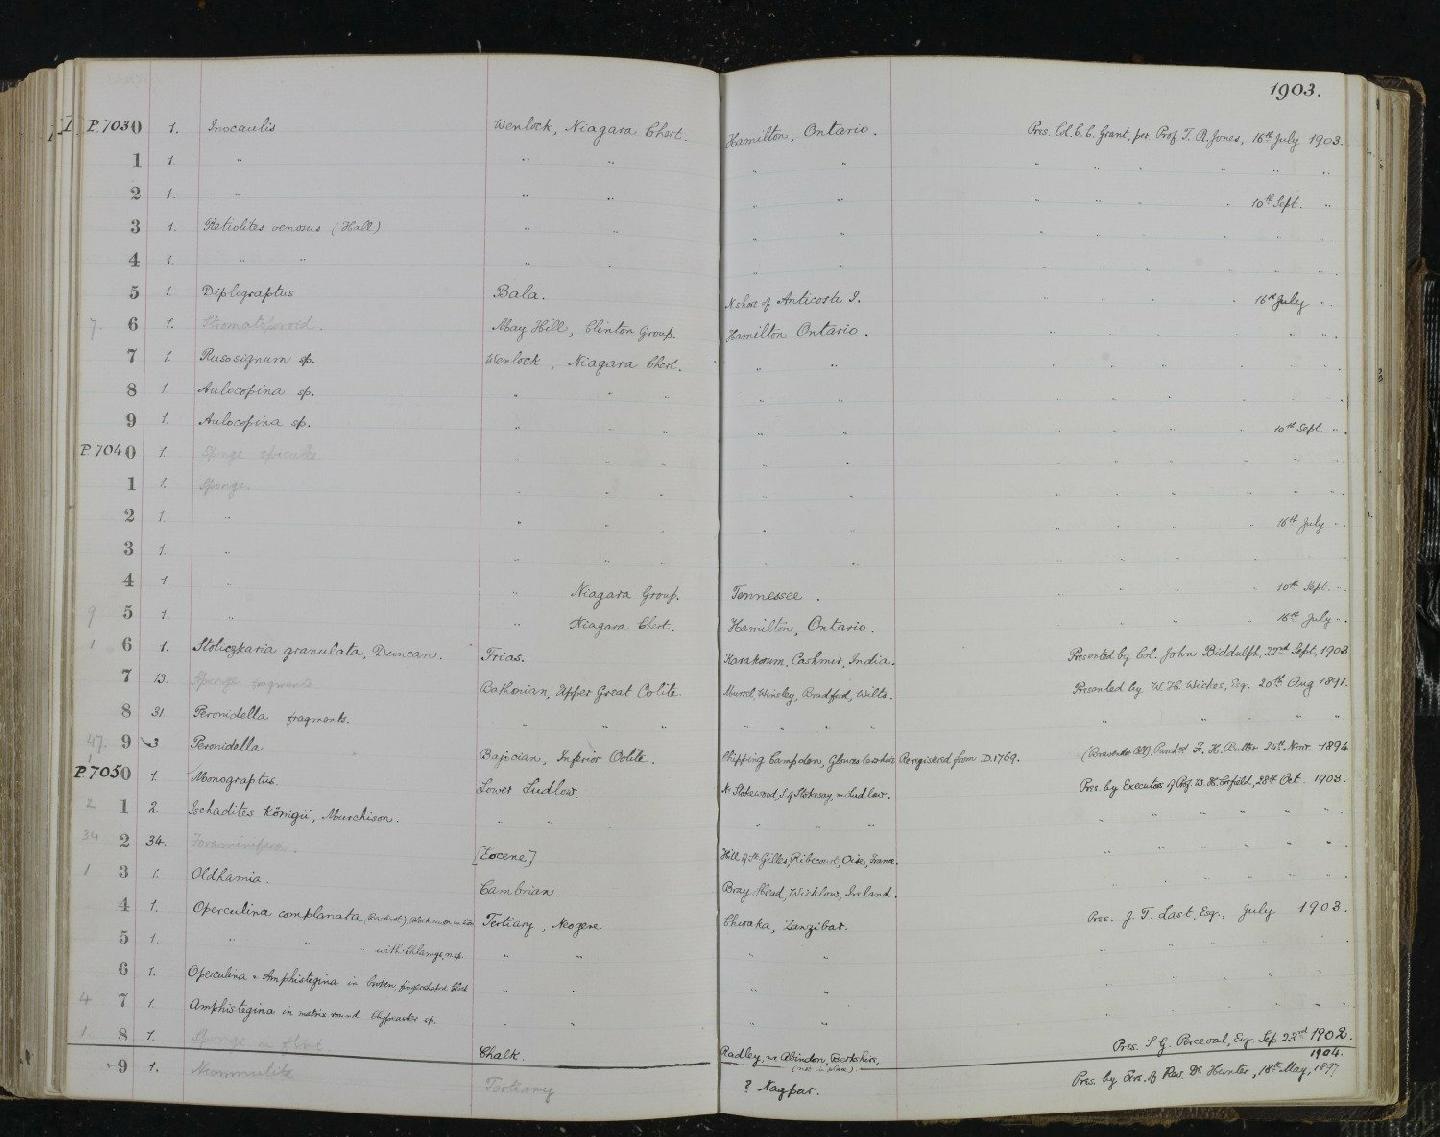 1903.
P.7030 1. Inocaulis Wenlock, Niagara Chert. Hamilton, Ontario. Pres. Col. C. C. Grant, per. Prof. T. R. Jones, 16th July 1903.
1 1. " " " " "
2 1. " " " " " 10th Sept. "
3 1. Retiolites venosus (Hall) " " " "
4 1. " " " " " "
5 1. Diplograptus Bala. N. shore of Anticosti I. " 16th July "
7. 6 1. Stromatoporoid. May Hill, Clinton Group. Hamilton Ontario. " "
7 1. sp. Wenlock, Niagara Chert. " " "
8 1. Aulocopina sp. " " " " "
9 1. Aulocopina sp. " " " " " 10th Sept. "
P.7040 1. Sponge spicules " " " " "
1 1. Sponge. " " " " "
2 1. " " " " 16th July "
3 1. " " " " "
4 1. " " Niagara Group. Tennessee. " 10th Sept. "
9 5 1. " " Niagara Chert. Hamilton, Ontario. " 16th July "
1 6 1. Stoliczkaria granulata, Duncan. Trias. Karakorum, Cashmir, India. Presented by Col. John Biddulph, 22nd Sept, 1903
7 13. Sponge fragments Bathonian, Upper Great Oolite. Murrel, Winsley, Bradford, Wilts. Presented by W. H. Wickes, Esq. 20th Aug 1891.
8 31 Peronidella fragments. " " " " " "
47. 9 3 Peronidella Bajocian, Inferior Oolite. Chipping Campden, Gloucestershire Reregistered from D.1769. F. H. Butler 25th Novr. 1894
P.7050 1. Monograptus. Lower Ludlow. S. of Stokesay, nr Ludlow. Pres. by Executors of Prof. W. H. Corfield, 28th Oct. 1903.
2 1 2. Ischadites Königii, Murchison. " " " " "
34 2 34. Foraminifera. [Eocene] Hill of St. Gilles, Ribecourt, Oise, France. " "
1 3 1. Oldhamia. Cambrian Bray Head, Wicklow, Ireland. " "
4 1. Operculina complanata Tertiary, Neogene Chwaka, Zanzibar. Pres. J. T. Last, Esq., July 1903.
5 1. " " " with Chlamys, n.sp. " " " " "
6 1. Operculina & Amphistegina in broken, block " " " " "
4 7 1. Amphistegina in matrix round Clypeaster sp. " " " " "
1 8 1. Sponge in flint Chalk. Radley, nr Abindon, Berkshire, (not in place) Pres. S. G. Perceval, Esq. Sep. 22nd 1902.
1904.
9 1. Nummulite Tertiary ? Nagpur. Pres. by Exrs. of Rev. Dr. Hunter, 18th May, 1897